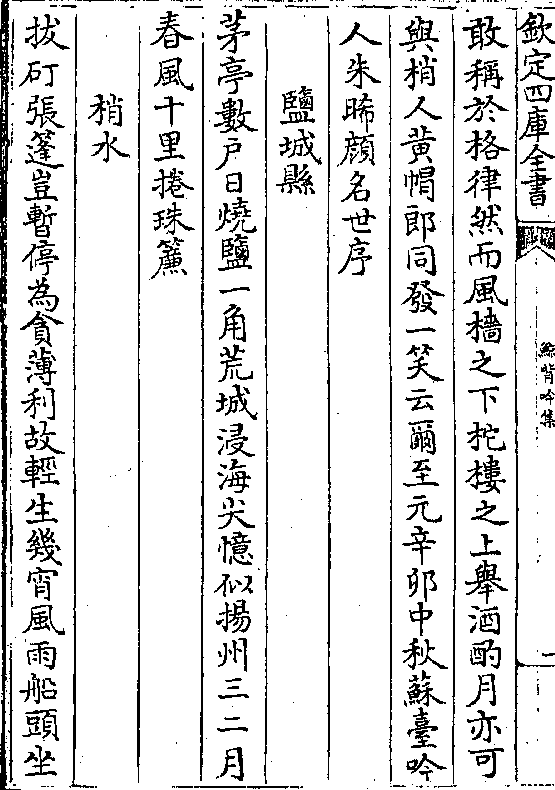 欽定四庫全書
鯨背吟集
一
敢稱於格律然而風檣之下柁樓之上舉酒酌月亦可
與梢人黄帽郎同發一笑云爾至元辛卯中秋蘇臺吟
人朱晞顔名世序
鹽城縣
茅亭數戸日燒鹽一角荒城浸海尖憶似揚州三二月
春風十里捲珠簾
稍水
拔矴張篷豈暫停為貪薄利故輕生幾宵風雨船頭坐